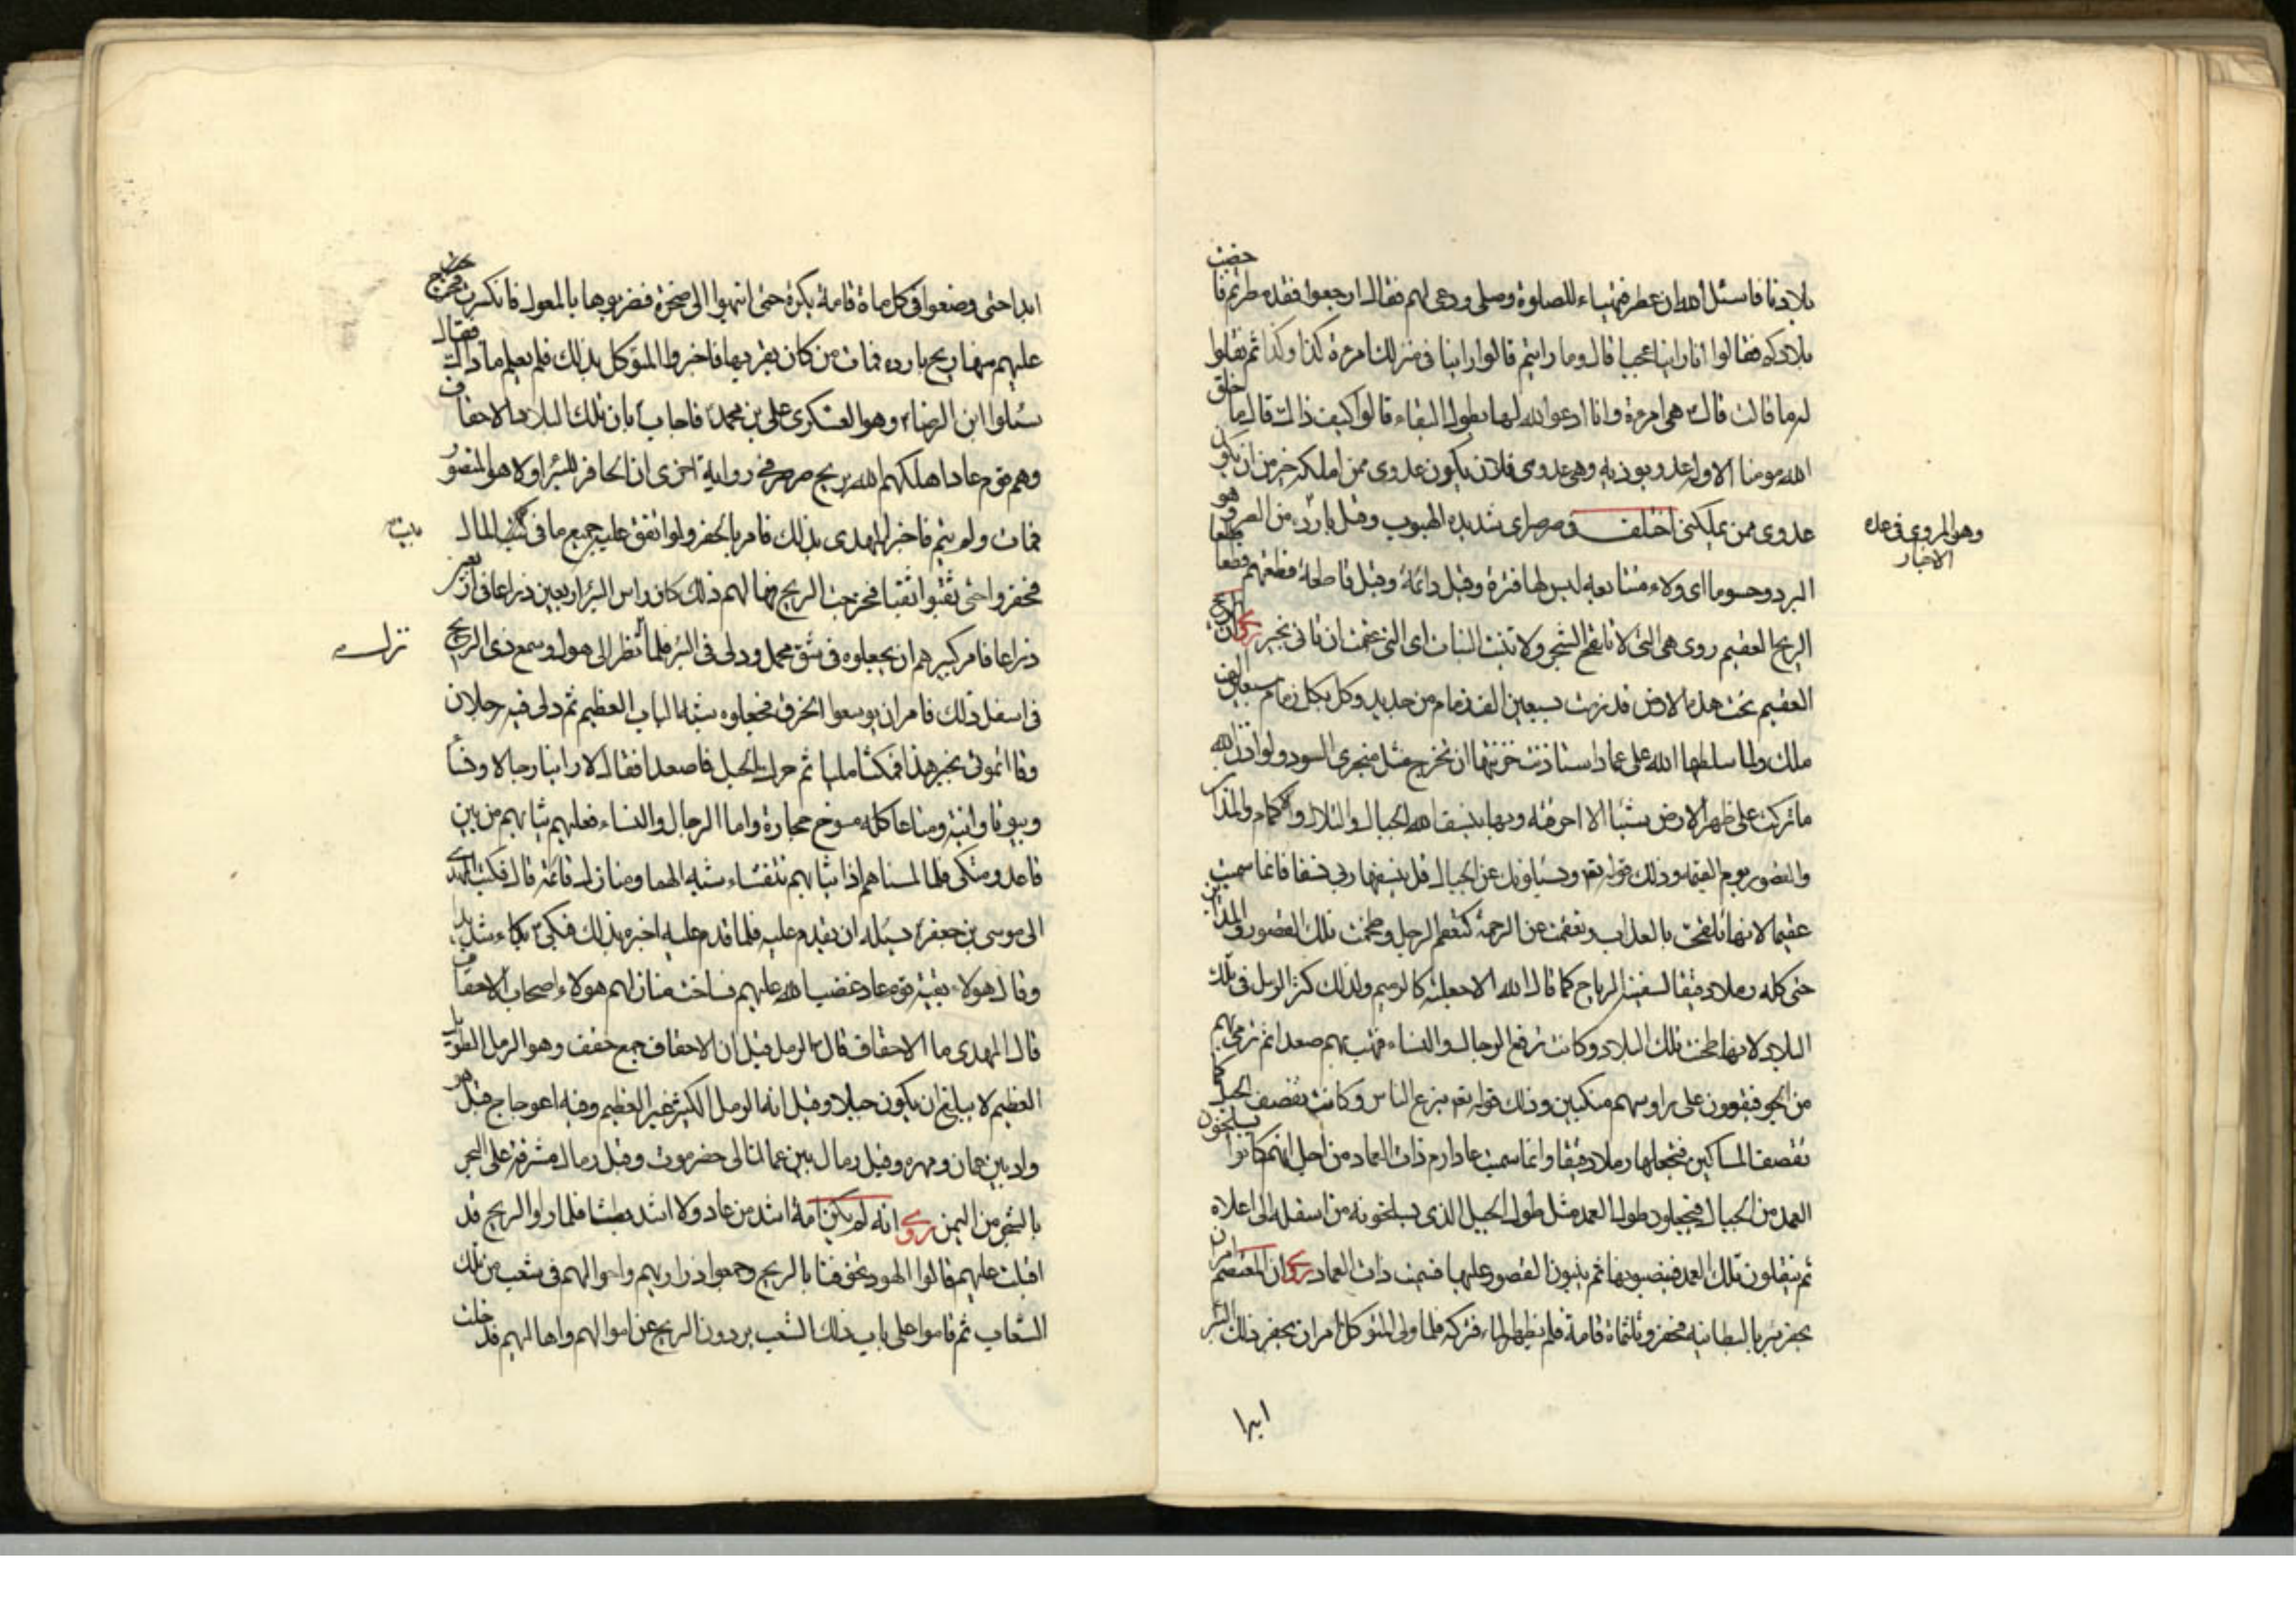 بلادنا فاسئل الله ان يمطر فتهياء للصلوة وصلى ودعى لهم فقال ارجعوا فقد مطرتم فا خصبت
بلادكم فقالوا انا راينا عجبا قال وما رايتم قالوا راينا في منزلك امرءة كذا وكذا ثم نقلوا
له ما قالت قال هي امرءتي وانا ادعو الله لها بطول البقاء قالوا كيف ذالك قال ما خلق
الله مومنا الا وله عدو يوذيه وهي عدوي فلان يكون عدوي ممن املكه خير من ان يكون
عدوي ممن يملكني اختلف في صرصر اي شديدة الهبوب وقيل باردة من الصر وهو
وهو المروي في عدة
الاخبار
البرد وحسوما اي ولاء متتابعة ليس لها فترة وقيل دائمة وقيل قاطعة قطعتهم قطعا
الريح العقيم روي هي التي لا تلقح الشجر ولا تنبت النبات اي التي عقمت ان تاتي بخير روي ان الريح
العقيم تحت هذه الارض قد زمت بسبعين الف زمام من حديد وكل بكل زمام سبعون الف
ملك ولما سلطها الله على عاد استاذنت خزنتها ان تخرج مثل منخري السود ولو اذن الله
ما تركت على ظهر الارض شيئا الا احرقته وبها ينسف الله الجبال والتلال والاكام والمداين
والقصور يوم القيمة وذلك قوله تعم ويسئلونك عن الجبال فقل ينسفها ربي نسفا فانما سميت
عقيما لانها تلقحت بالعذاب وتعقمت عن الرحمة كتعقم الرجل وطحنت تلك القصور والمداين
حتى كله رملا دقيقا تسفيه الرياح كما قال الله الا جعلته كالرميم ولذلك كثر الرمل في تلك
البلاد لانها طحنت تلك البلاد وكانت ترفع الرجال والنساء فتهب بهم صعدا ثم ترمي بهم
من الجو فيقعون على رؤسهم منكبين وذلك قوله تعم تنزع الناس وكانت تقصف الجبل كما
تقصف المساكين فتجعلها رملا دقيقا وانما سميت عاد ارم ذات العماد من اجل انهم كانوا يسلخون
العمد من الجبال فيجعلون طول العمد مثل طول الجبل الذي يسلخونه من اسفله الى اعلاه
ثم ينقلون تلك العمد فينصبونها ثم يبنون القصور عليها فسميت ذات العماد روي ان المعتصم امر ان
يحفر بئر بالبطانية فحفروا ثلثماة قامة فلم يظهر الماء فتركه فلما ولى المتوكل امر ان يحفر ذلك البئر
ابدا
ابدا حتى وضعوا في كل ماة قامة بكرة حتى انتهوا الى صخرة فضربوها بالمعول فانكسرت فخرج
عليهم منها ريح باردة فمات من كان بقربها فاخبروا المتوكل بذلك فلم يعلم ما ذاك فقال
سئلوا ابن الرضاء وهو العسكري علي بن محمد فاجاب بان تلك البلاد الاحقاف
وهم قوم عاد اهلكهم الله بريح صرصر في رواية اخرى ان الحافر للبئر اولا هو المنصور
فمات ولم يتم فاخبر المهدي بذلك فامر بالحفر ولو انفق عليه جميع ما في بيت المال
بيت
فحفروا حتى ثقبوا ثقبا فخرجت الريح فهالهم ذلك كان راس البئر اربعين ذراعا في اربعين
ذراعا فامر كبيرهم ان يجعلوه في شق محمل ودلى في البئر فلما نظر الى هول وسمع ذي الريح
نزل
في اسفل ذلك فامر ان يوسعوا الخرق فجعلوه شبه الباب العظيم ثم دلى فيه رجلان
وقال ائتوني بخبر هذا فمكثا مليا ثم حرك الحبل فاصعدا فقالا راينا رجالا ونساء
وبيوتا وانية ومتاعا كله مسوخ حجارة واما الرجال والنساء فعليهم ثيابهم من بين
قاعد ومتكى فلما لمسناهم اذا ثيابهم تنفشاء شبه الهباء ومنازله قائمة قال فكتب المهدي
الى موسى بن جعفر يسئله ان يقدم عليه فلما قدم عليه اخبره بذلك فبكى بكاء شديدا
وقال هولاء بقية قوم عاد غضب الله عليهم فساخت منازلهم هولاء اصحاب الاحقاف
قال المهدي ما الاحقاف قال الرمل قيل ان الاحقاف جمع حقف وهو الرمل الطويل
العظيم لا يبلغ ان يكون جبلا وقيل انه الرمل الكثير غير العظيم وفيه اعوجاج قيل هو
واد بين عمان ومهره وقيل رمال بين عمان الى حضرموت وقيل رمال مشرفة على البحر
بالشحر من اليمن روي انه لم يكن امة اشد من عاد ولا اشد بطشا فلما راوا الريح قد
اقبلت عليهم قالوا لهود تخوفنا بالريح فجمعوا ذراريهم واموالهم في شعب من تلك
الشعاب ثم قاموا على باب ذلك الشعب يردون الريح عن اموالهم واهاليهم فدخلت